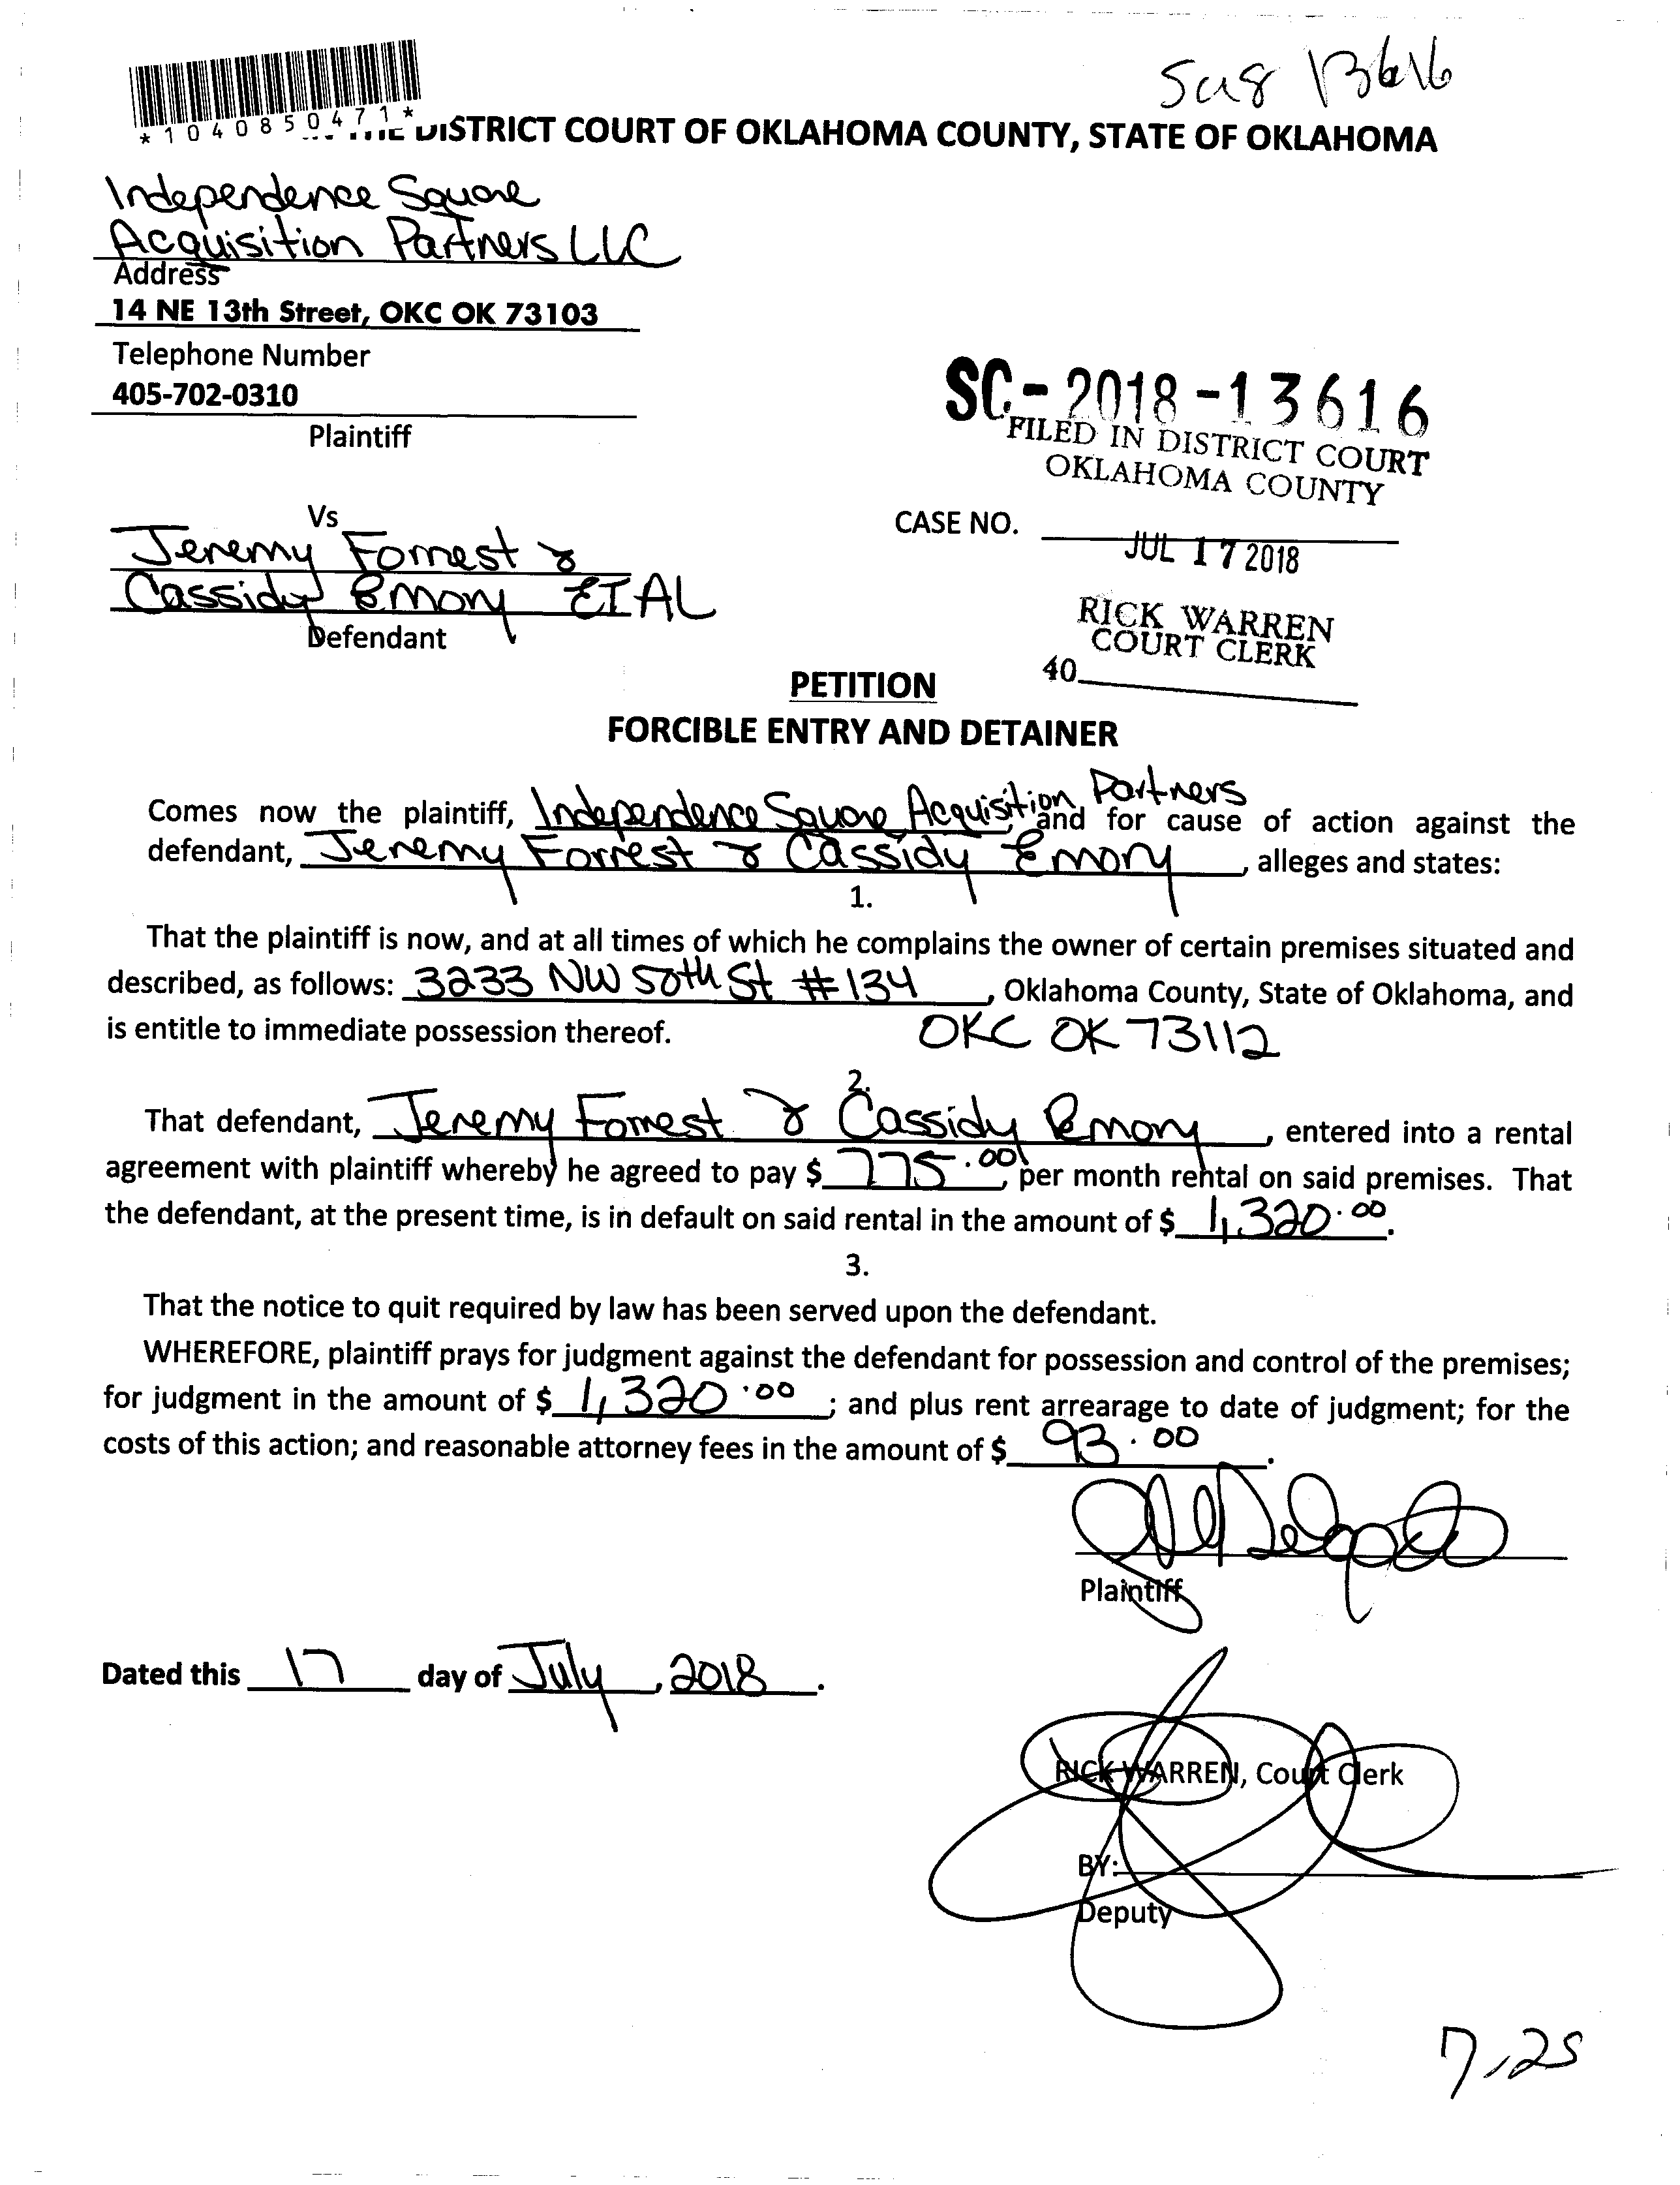 *1040850471*
DISTRICT COURT OF OKLAHOMA COUNTY, STATE OF OKLAHOMA
13616
Independence Square
Acquisition Partners LLC
Address
14 NE 13th Street, OKC OK 73103
Telephone Number
405-702-0310
Plaintiff
SC-2018-13616
FILED IN DISTRICT COURT
OKLAHOMA COUNTY
Vs
CASE NO.
JUL 17 2018
Jeremy Forrest &
Cassidy Emory ET AL
Defendant
RICK WARREN
COURT CLERK
40
PETITION
FORCIBLE ENTRY AND DETAINER
Comes now the plaintiff, Independence Square Acquisition Partners, and for cause of action against the
defendant, Jeremy Forrest & Cassidy Emory, alleges and states:
1.
That the plaintiff is now, and at all times of which he complains the owner of certain premises situated and
described, as follows: 3233 NW 50th St #134, Oklahoma County, State of Oklahoma, and
is entitle to immediate possession thereof. OKC OK 73112
2.
That defendant, Jeremy Forrest & Cassidy Emory, entered into a rental
agreement with plaintiff whereby he agreed to pay $ 775.00, per month rental on said premises. That
the defendant, at the present time, is in default on said rental in the amount of $ 1,320.00.
3.
That the notice to quit required by law has been served upon the defendant.
WHEREFORE, plaintiff prays for judgment against the defendant for possession and control of the premises;
for judgment in the amount of $ 1,320.00; and plus rent arrearage to date of judgment; for the
costs of this action; and reasonable attorney fees in the amount of $ 93.00.
Plaintiff
Dated this 17 day of July, 2018.
RICK WARREN, Court Clerk
BY:
Deputy
7.25